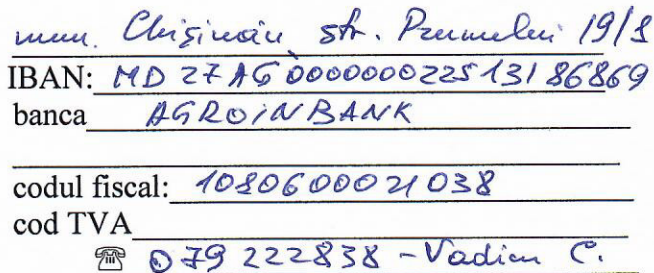 mun. Chișinău, str. Prunului 19/1
IBAN: MD 27 AG 000000022513186869
banca AGROINBANK
codul fiscal: 1010600021038
cod TVA
☎ 079 222838 - Vadim C.